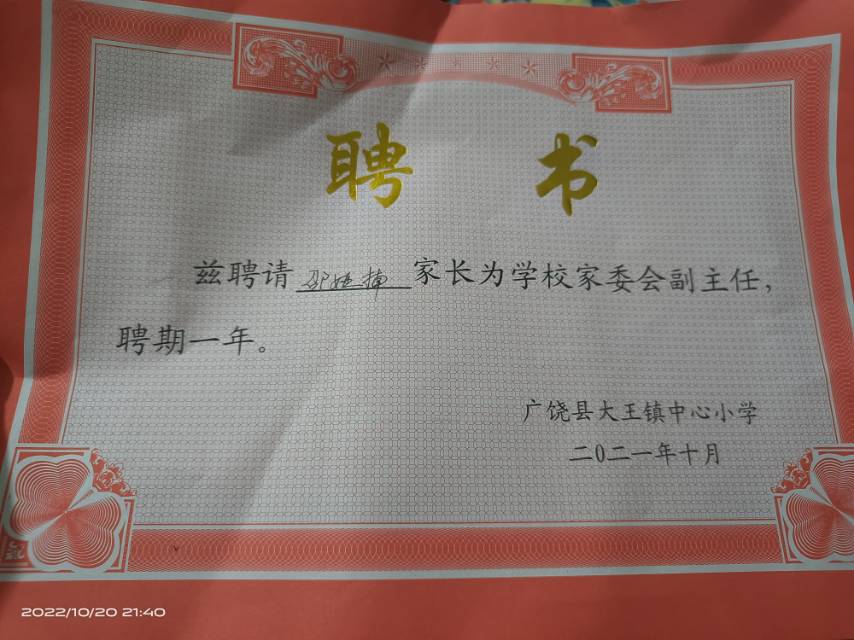 聘 书
兹聘请 邵 楠 家长为学校家委会副主任，
聘期一年。
广饶县大王镇中心小学
二〇二一年十月
2022/10/20 21:40